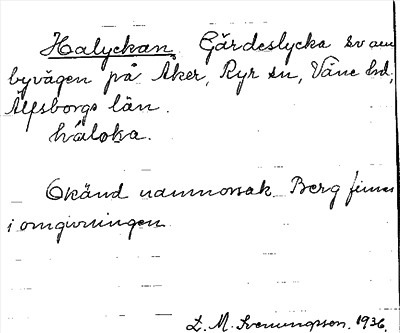 Halyckan, Gärdeslycka sv om
byvägen på Åker, Ryr sn, Väne hd,
Älfsborgs län.
háloka.
Okänd namnorsak. Berg finnes
i omgivningen.
L. M. Svenungsson. 1936.